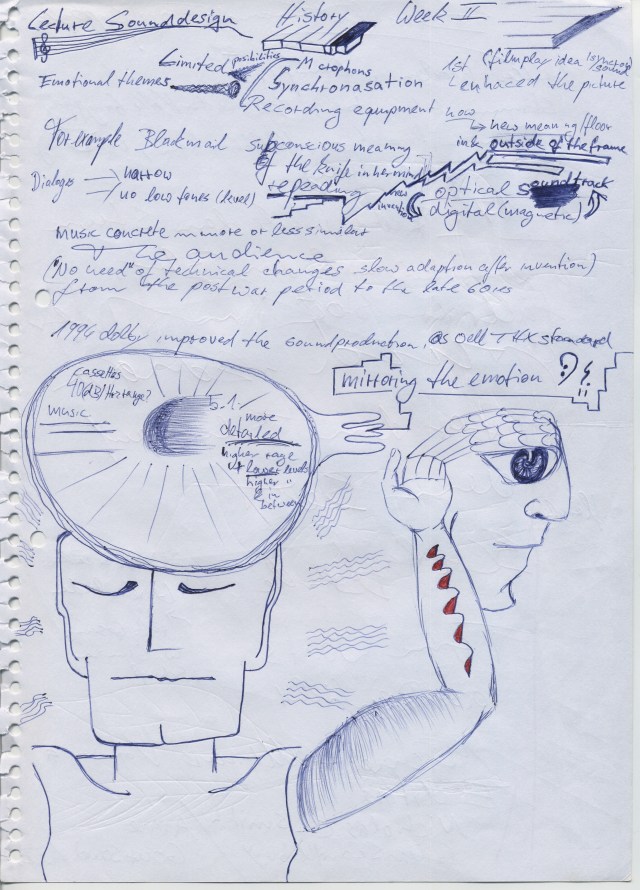 Lecture Sounddesign History Week II
Limited possibilities Microphons
Emotional themes Synchronasation
Recording equipment
1st (filmplay idea synchron sound
enhaced the picture
how
new meaning/floor
outside of the frame
For example Blackmail subconscious meaning
of the knife in her mind
repeading
Dialoge narrow
no low tones (level)
new invention
optical soundtrack
digital (magnetic)
Music concrete m more or less similar
to audience
("No need" of technical changes slow adaption after invention)
from the post war period to the late 60ies
1994 dolby improved the soundproduction, as well THX standard
mirroring the emotion
cassettes
music
5.1.
more
detailed
higher rage
lower levels
higher "
& in
between